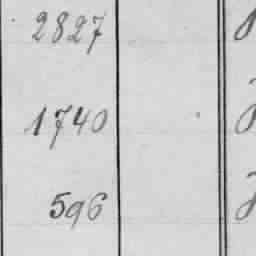 2827
1740
596